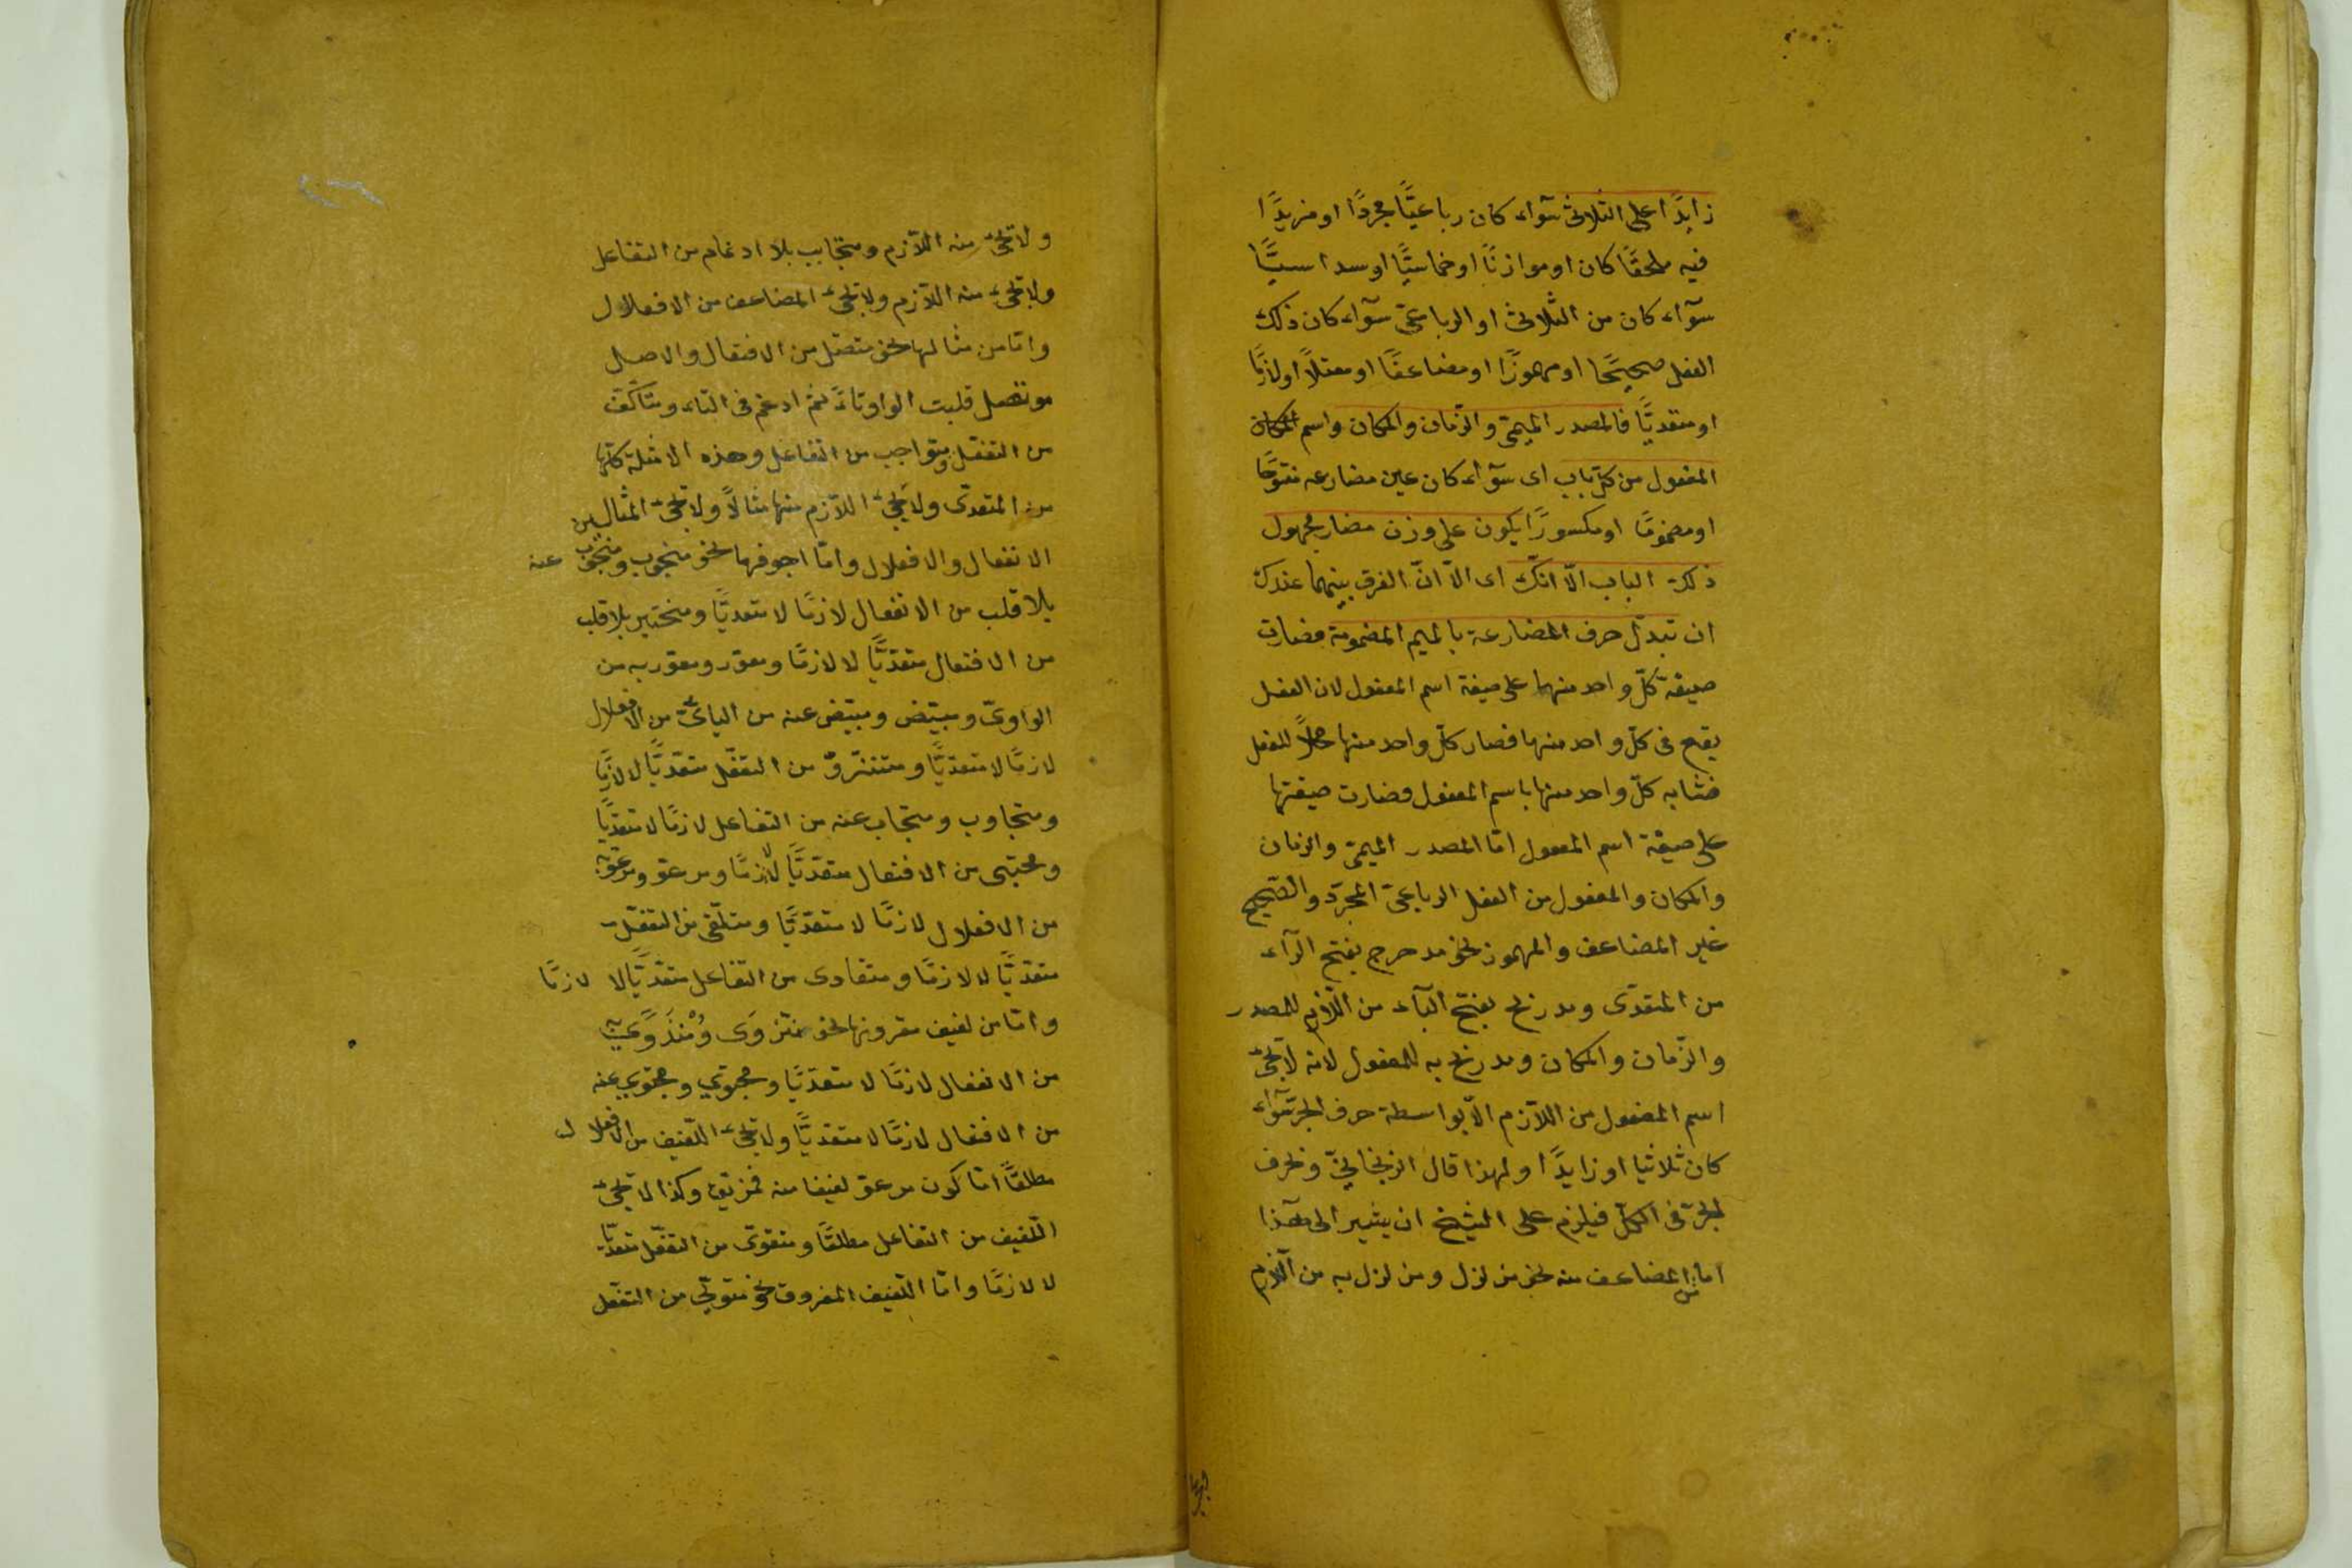 زايدًا على الثلاثى سوآء كان رباعيًّا مجردًا او مزيدًا
فيه ملحقًا كان او موازنًا او خماسيًّا او سداسيًّا
سوآء كان من الثلاثى او الرباعىّ سوآء كان ذلك
الفعل صحيحًا او مهموزًا او مضاعفًا او معتلًّا او لازمًا
او متعديًّا فالمصدر الميمىّ والزّمان والمكان واسم المكان
المفعول من كلّ باب اى سوآء كان عين مضارعه مفتوحًا
او مضمومًا او مكسورًا يكون على وزن مضارع مجهول
ذلك الباب الّا انّك اى الّا انّ الفرق بينهما عندك
ان تبدل حرف المضارعة بالميم المضمومة فصارت
صيغة كلّ واحد منهما على صيغة اسم المفعول لان الفعل
يقع فى كلّ واحد منهما فصار كلّ واحد منهما محلًّا للفعل
فشابه كلّ واحد منها باسم المفعول فصارت صيغتها
على صيغة اسم المفعول امّا المصدر الميمىّ والزمان
والمكان والمفعول من الفعل الرباعىّ المجرّد والصّحيح
غير المضاعف والمهموز نحو مدحرج بفتح الرآء
من المتعدّى ومدربخ بفتح البآء من اللّازم للمصدر
والزّمان والمكان ومدربخ به للمفعول لانه لا تجئ
اسم المفعول من اللّازم الّا بواسطة حرف الجر سوآء
كان ثلاثيا او زايدًا ولهذا قال الزنجانىّ وبحرف
الجرّ فى الكلّ فيلزم على الشيخ ان يشير الى هذا
امّا من المضاعف منه نحو مزلزل ومزلزل به من اللّازم
ولا تجئ منه اللّازم ومتجابب بلا ادغام من التفاعل
ولا تجئ منه اللّازم ولا تجئ المضاعف من الافعلال
وامّا من مثالها نحو متصل من الافتعال والاصل
موتصل قلبت الواو تاءً ثم ادغم فى التاء ومتأكّف
من التفعّل ومتواجب من التفاعل وهذه الامثلة كلّها
من المتعدّى ولا تجئ اللّازم منها مثالًا ولا تجئ المثال من
الانفعال والافعلال وامّا اجوفها نحو منجوب ومنجوب عنه
بلا قلب من الانفعال لازمًا لا متعديًّا ومختير بلا قلب
من الافتعال متعدّيًّا لا لازمًا ومعوّر ومعوّر به من
الواوىّ ومبيّض ومبيّض عنه من اليائىّ من الافعلال
لازمًا لا متعدّيًّا من التفعّل متعدّيًّا لا لازمًا
ومتجاوب ومتجاب عنه من التفاعل لازمًا لا متعدّيًّا
ومجتبى من الافتعال متعدّيًّا لا لازمًا ومرعو ومرعوّ به
من الافعلال لازمًا لا متعدّيًّا ومتلقّى من التفعّل
متعدّيًّا لا لازمًا ومتفادى من التفاعل متعدّيًّا لا لازمًا
وامّا من لفيف مقرونها نحو منزوى
من الانفعال لازمًا لا متعدّيًّا ومجتوى ومجتوى عنه
من الافتعال لازمًا لا متعدّيًّا ولا تجئ اللّفيف من الافعلال
مطلقًا امّا كون مرعو لفيفا منه وكذا لا تجئ
اللّفيف من التفاعل مطلقًا ومتقوّى من التفعّل متعدّيًا
لا لازمًا وامّا اللّفيف المفروق نحو متولّى من التفعّل